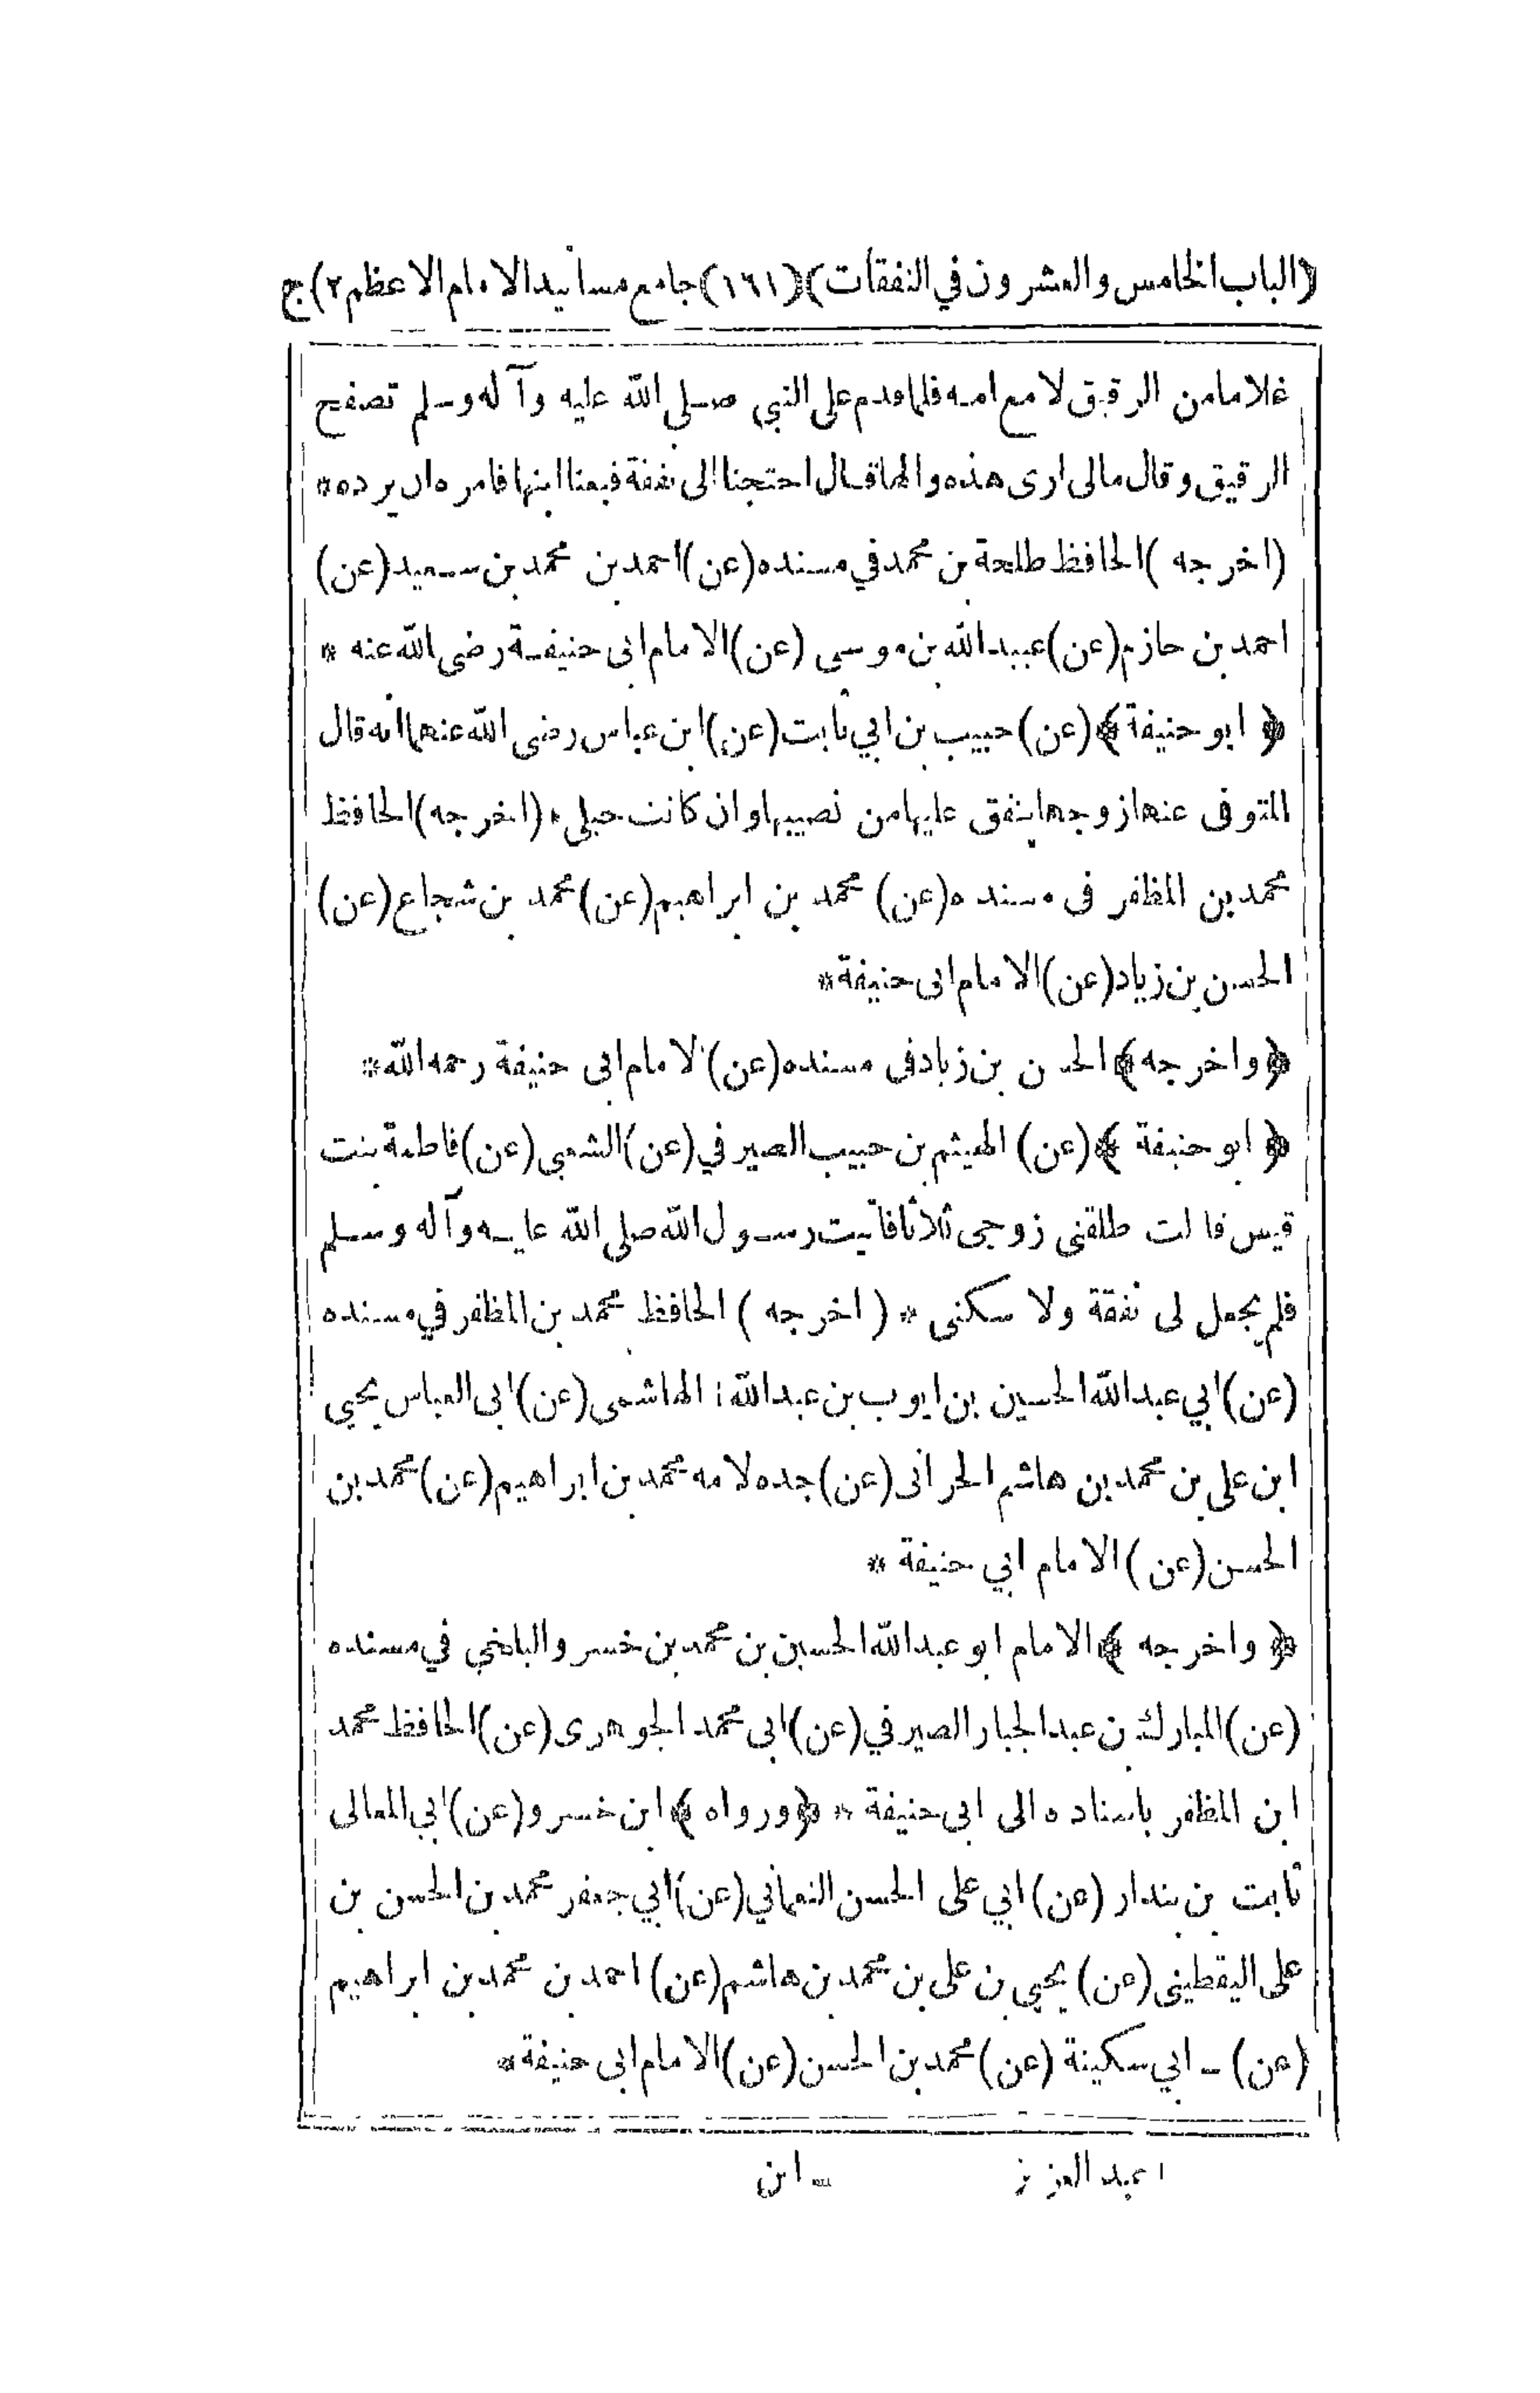 (الباب الخامس والعشرون في النفقات) (١٦١) جامع مسانيد الامام الاعظم ٢) ج
غلاما من الرقيق لا مع امه فلما قدم على النبي صلى الله عليه وآله وسلم تصفح
الرقيق وقال مالى ارى هذه والها قال احتجنا الى نفقة فبعنا ابنها فامره ان يرده *
(اخرجه) الحافظ طلحة بن محمد في مسنده (عن) احمد بن محمد بن سعيد (عن)
احمد بن حازم (عن) عبيد الله بن موسى (عن) الامام ابى حنيفة رضى الله عنه *
﴿ ابو حنيفة ﴾ (عن) حبيب بن ابي ثابت (عن) ابن عباس رضى الله عنهما انه قال
المتوفى عنها زوجها ينفق عليها من نصيبها وان كانت حبلى * (اخرجه) الحافظ
محمد بن المظفر فى مسنده (عن) محمد بن ابراهيم (عن) محمد بن شجاع (عن)
الحسن بن زياد (عن) الامام ابى حنيفة *
﴿ واخرجه ﴾ الحسن بن زياد فى مسنده (عن) الامام ابى حنيفة رحمه الله *
﴿ ابو حنيفة ﴾ (عن) الهيثم بن حبيب الصير في (عن) الشعبي (عن) فاطمة بنت
قيس قالت طلقنى زوجى ثلاثا فاتيت رسول الله صلى الله عليه وآله وسلم
فلم يجعل لى نفقة ولا سكنى * (اخرجه) الحافظ محمد بن المظفر في مسنده
(عن) ابي عبد الله الحسين بن ايوب بن عبد الله ١ الهاشمى (عن) ابى العباس يحيى
ابن على بن محمد بن هاشم الحرانى (عن) جده لامه محمد بن ابراهيم (عن) محمد بن
الحسن (عن) الامام ابي حنيفة *
﴿ واخرجه ﴾ الامام ابو عبد الله الحسين بن محمد بن خسرو البلخي في مسنده
(عن) المبارك بن عبد الجبار الصير في (عن) ابى محمد الجوهرى (عن) الحافظ محمد
ابن المظفر باسناده الى ابى حنيفة * ﴿ ورواه ﴾ ابن خسرو (عن) ابي المعالى
ثابت بن بندار (عن) ابي على الحسن النعماني (عن) ابي جعفر محمد بن الحسن بن
على اليقطينى (عن) يحيى بن على بن محمد بن هاشم (عن) احمد بن محمد بن ابراهيم
(عن) ـ ابي سكينة (عن) محمد بن الحسن (عن) الامام ابى حنيفة *
١ عبد العزيز ـ ابن